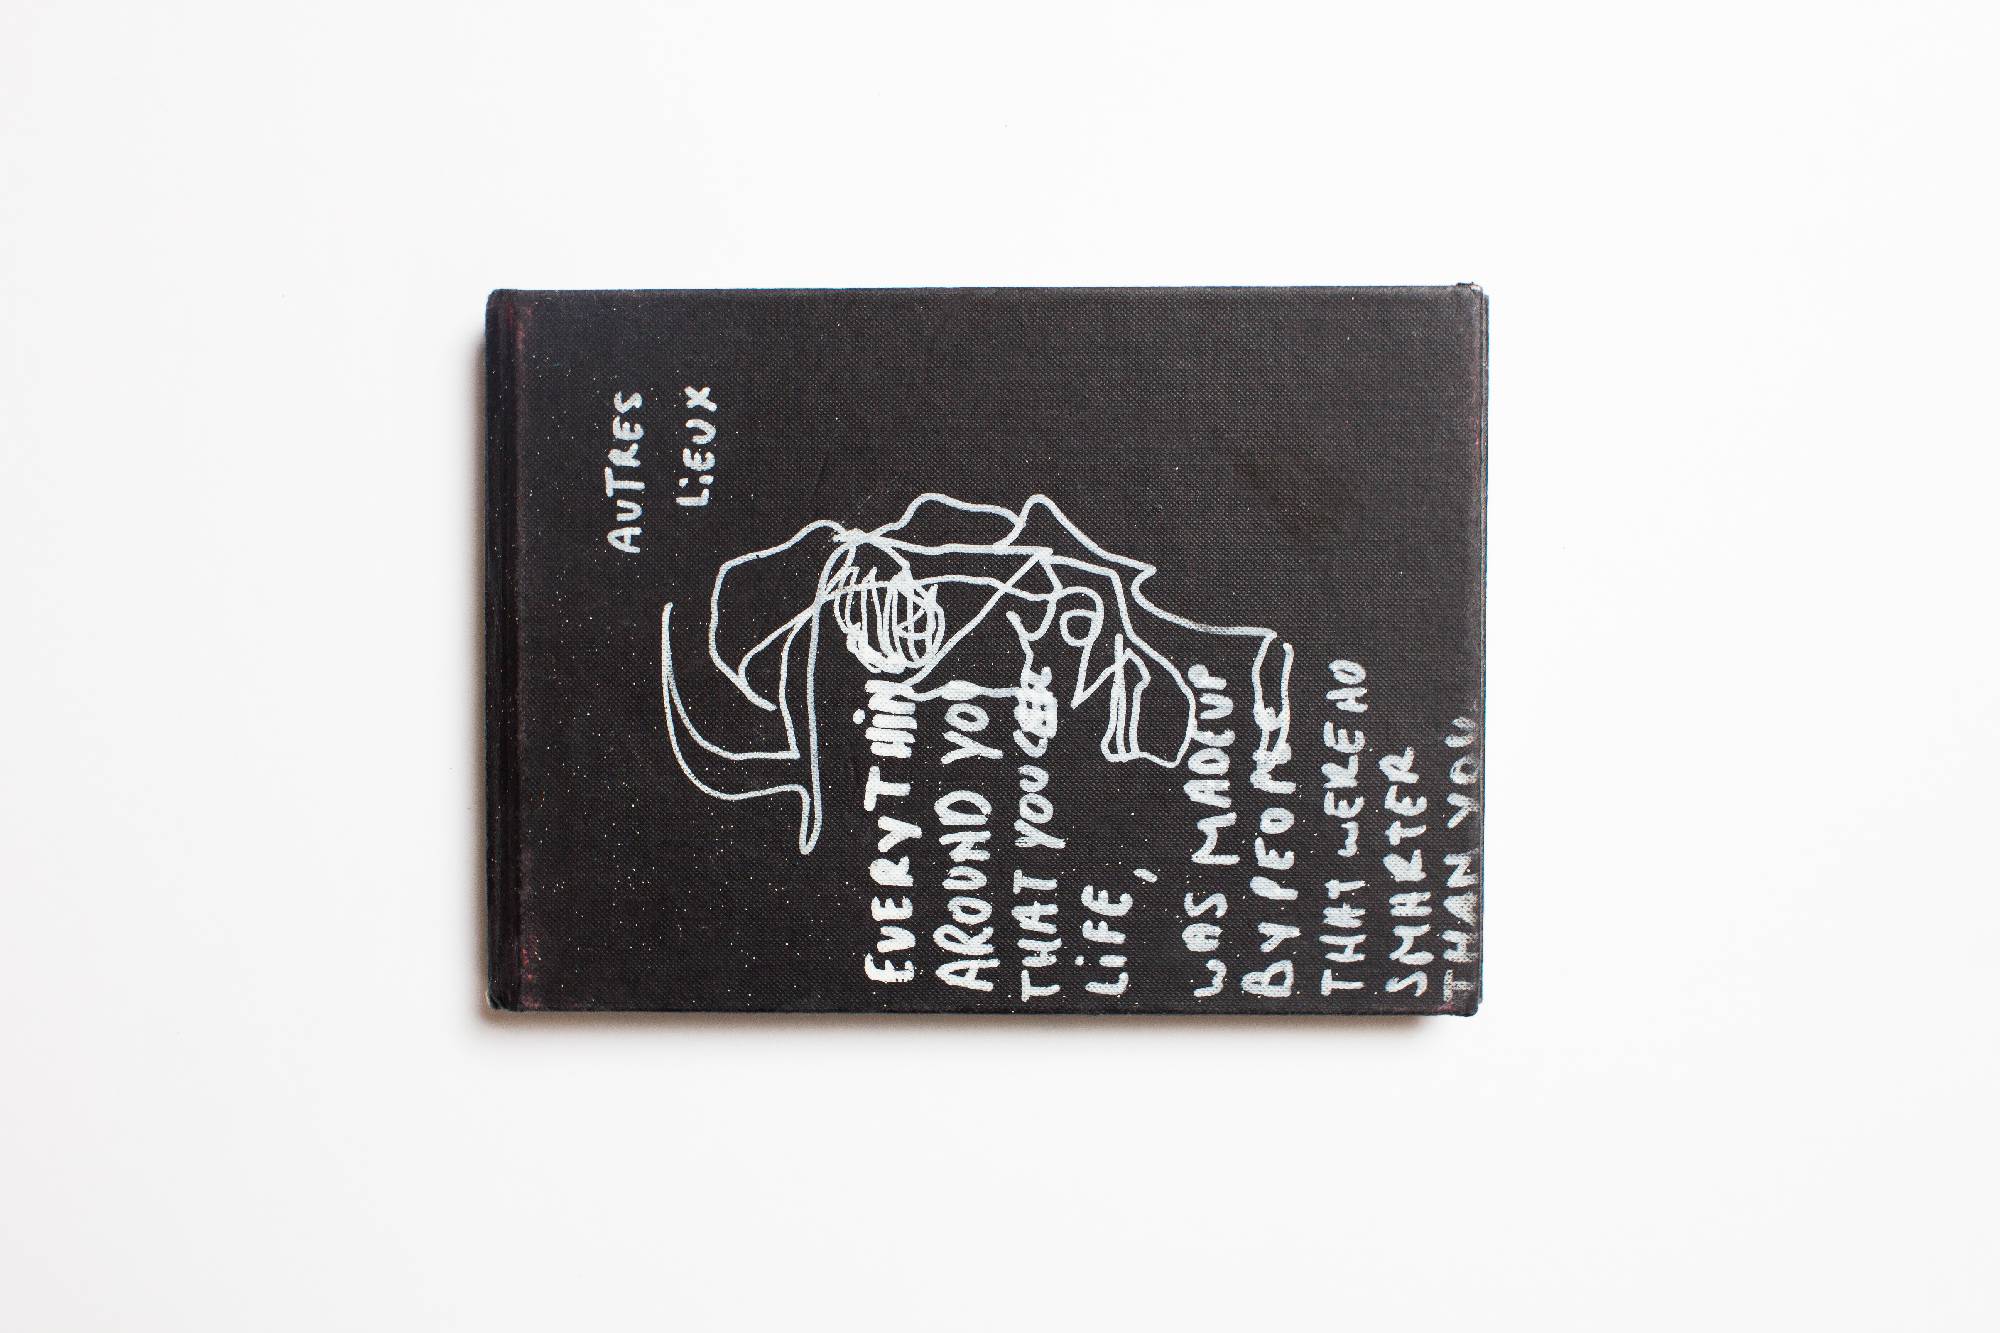 AUTRES
LiEUX
EVERYTHING
AROUND YOU
THAT YOU
LiFE,
WAS MADE UP
BY PEOPLE
THAT WERE NO
SMARTER
THAN YOU.